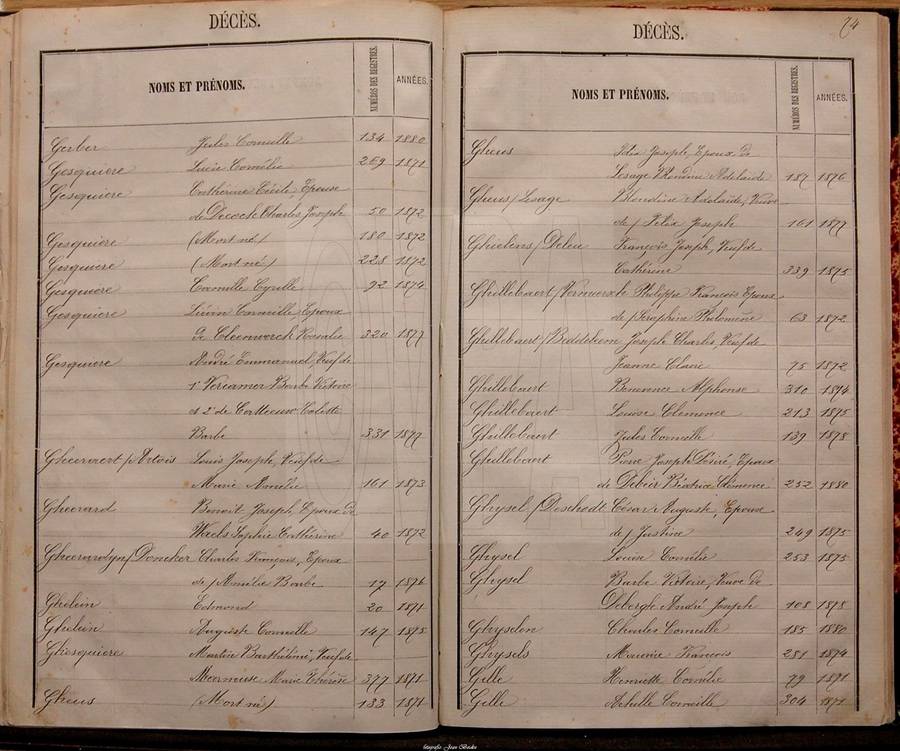 DÉCÈS.
NOMS ET PRÉNOMS. NUMÉROS DES REGISTRES. ANNÉES.
Gerber Jules Corneille 134 1880
Gesquiere Lucie Cornélie 269 1871
Gesquiere Catherine Cécile, Epouse
de Decock Charles Joseph 50 1872
Gesquiere (Mort né) 180 1872
Gesquiere (Mort né) 228 1872
Gesquiere Camille Cyrille 92 1874
Gesquiere Corneille Epoux
de Rosalie 320 1877
Gesquiere André Emmanuel, Veuf de
1° Barbe Victoire
et 2° de Colette
Barbe 331 1877
Gheeraert p/ Artois Louis Joseph, Veuf de
Marie Amélie 161 1873
Gheerard Benoit Joseph, Epoux de
Waels Sophie Catherine 40 1872
Gheerardyn/Doncker Charles François, Epoux
de/ Amélie Barbe 17 1876
Ghelein Edmond 20 1871
Ghelein Auguste Corneille 147 1875
Ghesquiere Martin Barthélémi, Veuf de
Marie Thérèse 377 1871
Gheus (Mort né) 133 1871
DÉCÈS. 74
NOMS ET PRÉNOMS. NUMÉROS DES REGISTRES. ANNÉES.
Gheus Félix Joseph, Epoux de
Lesage Blondine Adelaïde 187 1876
Gheus/Lesage Blondine Adelaïde, Veuve
de/ Félix Joseph 161 1877
Ghielens/Deleu François Joseph, Veuf de
Catherine 339 1875
Ghillebaert/Vermersch Philippe François Epoux
de/ Séraphine Philomène 63 1872
Ghillebaert/ Joseph Charles, Veuf de
Jeanne Claire 75 1872
Ghillebaert Alphonse 310 1874
Ghillebaert Louise Clémence 213 1875
Ghillebaert Jules Corneille 139 1878
Ghillebaert Pierre Joseph Désiré, Epoux
de Béatrice Clémence 252 1880
Ghysel/Deschodt César Auguste, Epoux
de/ Justine 249 1875
Ghysel Louise Cornélie 253 1875
Ghysel Barbe Victoire, Veuve de
Debergh André Joseph 108 1878
Ghyselen Charles Corneille 185 1880
Ghysels Maurice François 281 1874
Gille Henriette Cornélie 79 1871
Gille Achille Corneille 304 1871
fotografie Jean Beckx